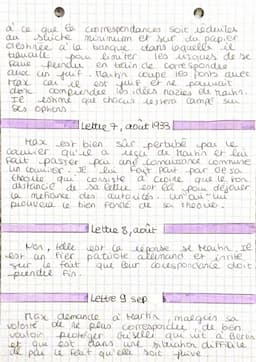 à ce que la correspondances soit réduites
au stricte minimum et sur du papier
à la banque dans laquelle il
travaille pour limiter les risques de se
faire prendre en train de correspondre
avec un juif. Martin coupe les ponts avec
Max car il est juif et ne pourrait
donc comprendre les idées nazies de Martin.
Il estime que chacun restera campé sur
ses options.
Lettre 7, août 1933
Max est bien sûr perturbé par le
courrier qu'il a reçu de Martin et lui
fait passer par une connaissance commune
un courrier. Il lui fait part par de sa
que consiste à croire que le ton
distancié de sa lettre est là pour déjouer
la méfiance des autorités. un "oui"
prouvera le bien fondé de sa théorie.
Lettre 8, août
Non, telle est la réponse de Martin. Il
est un fier patriote allemand et insiste
sur le fait que leur correspondance doit
prendre fin.
Lettre 9 sep
Max demande à Martin, malgrès sa
volonté de ne plus correspondre, de bien
vouloir protéger Griselle qui vit à Berlin
et qui est dans une situation difficile
de par le fait qu'elle soit juive.